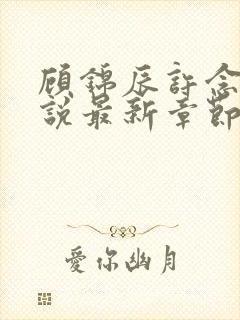 顾锦辰許念
說最新章節
愛你幽月